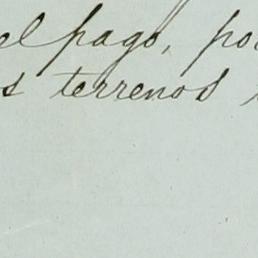 el pago, po
s terrenos